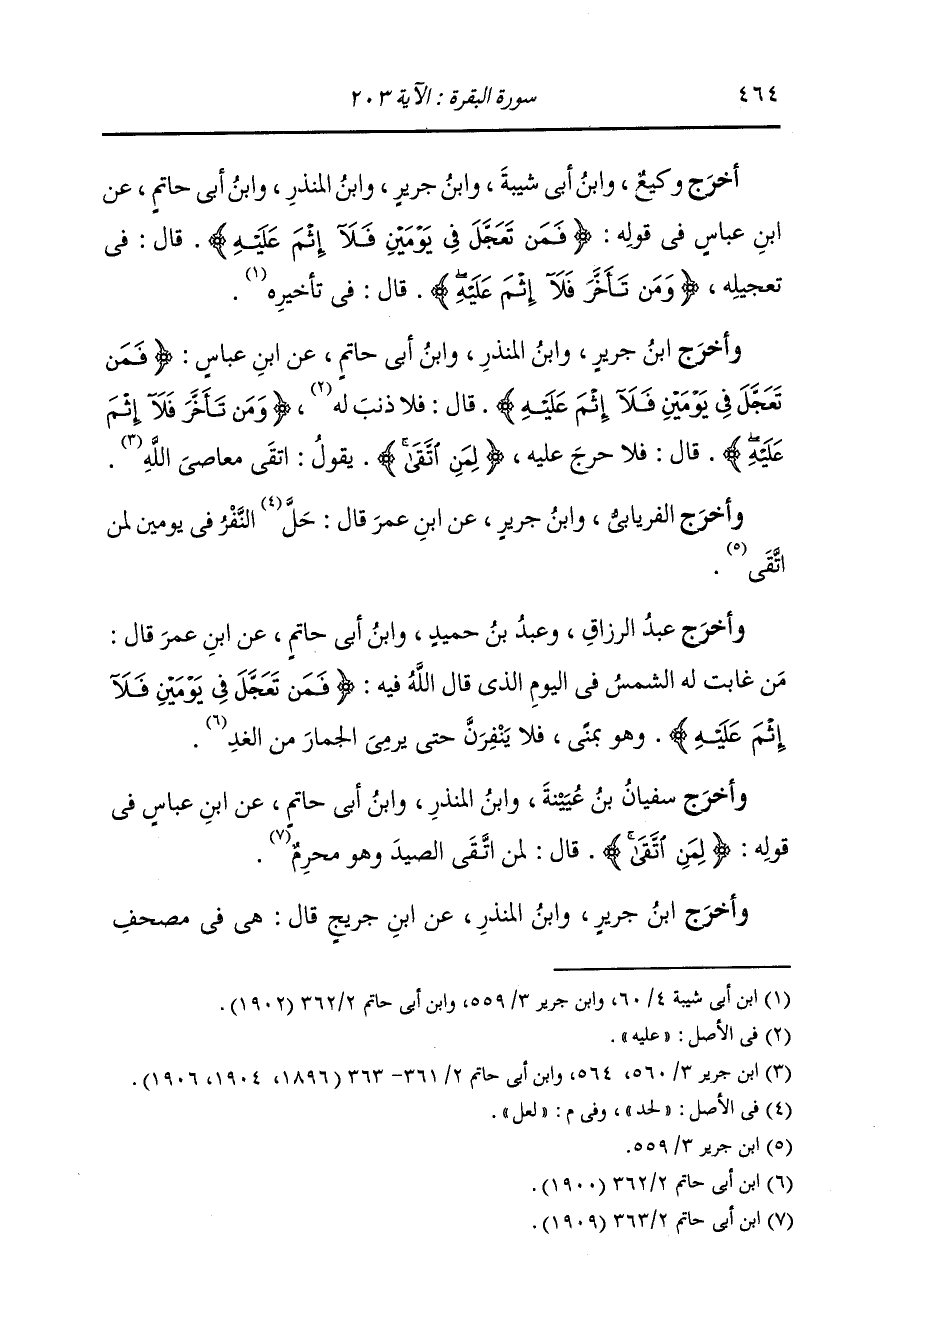 ٤٦٤
سورة البقرة : الآية ٢٠٣
أخرَج وكيعٌ ، وابنُ أبى شيبةَ ، وابنُ جريرٍ ، وابنُ المنذرِ ، وابنُ أبى حاتمٍ ، عن
ابنِ عباسٍ فى قولِه : ﴿ فَمَن تَعَجَّلَ فِى يَوْمَيْنِ فَلَآ إِثْمَ عَلَيْهِ ﴾ . قال : فى
تعجيلِه ، ﴿ وَمَن تَأَخَّرَ فَلَآ إِثْمَ عَلَيْهِۖ ﴾ . قال : فى تأخيرِه(١) .
وأخرَج ابنُ جريرٍ ، وابنُ المنذرِ ، وابنُ أبى حاتمٍ ، عن ابنِ عباسٍ : ﴿ فَمَن
تَعَجَّلَ فِى يَوْمَيْنِ فَلَآ إِثْمَ عَلَيْهِ ﴾ . قال : فلا ذنبَ له(٢) ، ﴿ وَمَن تَأَخَّرَ فَلَآ إِثْمَ
عَلَيْهِۖ ﴾ . قال : فلا حرجَ عليه ، ﴿ لِمَنِ ٱتَّقَىٰۗ ﴾ . يقولُ : اتقَى معاصىَ اللَّهِ(٣) .
وأخرَج الفريابىُّ ، وابنُ جريرٍ ، عن ابنِ عمرَ قال : حَلَّ(٤) النَّفْرُ فى يومين لمن
اتَّقَى(٥) .
وأخرَج عبدُ الرزاقِ ، وعبدُ بنُ حميدٍ ، وابنُ أبى حاتمٍ ، عن ابنِ عمرَ قال :
مَن غابت له الشمسُ فى اليومِ الذى قال اللَّهُ فيه : ﴿ فَمَن تَعَجَّلَ فِى يَوْمَيْنِ فَلَآ
إِثْمَ عَلَيْهِ ﴾ . وهو بمنًى ، فلا يَنْفِرَنَّ حتى يرمىَ الجمارَ من الغدِ(٦) .
وأخرَج سفيانُ بنُ عُيَيْنةَ ، وابنُ المنذرِ ، وابنُ أبى حاتمٍ ، عن ابنِ عباسٍ فى
قولِه : ﴿ لِمَنِ ٱتَّقَىٰۗ ﴾ . قال : لمن اتَّقَى الصيدَ وهو محرِمٌ(٧) .
وأخرَج ابنُ جريرٍ ، وابنُ المنذرِ ، عن ابنِ جريجٍ قال : هى فى مصحفِ
(١) ابن أبى شيبة ٤/ ٦٠، وابن جرير ٣/ ٥٥٩، وابن أبى حاتم ٣٦٢/٢ (١٩٠٢).
(٢) فى الأصل : «عليه» .
(٣) ابن جرير ٣/ ٥٦٠، ٥٦٤، وابن أبى حاتم ٢/ ٣٦١- ٣٦٣ (١٨٩٦، ١٩٠٤، ١٩٠٦).
(٤) فى الأصل : «لحد» ، وفى م : «لعل» .
(٥) ابن جرير ٣/ ٥٥٩.
(٦) ابن أبى حاتم ٣٦٢/٢ (١٩٠٠).
(٧) ابن أبى حاتم ٣٦٣/٢ (١٩٠٩).